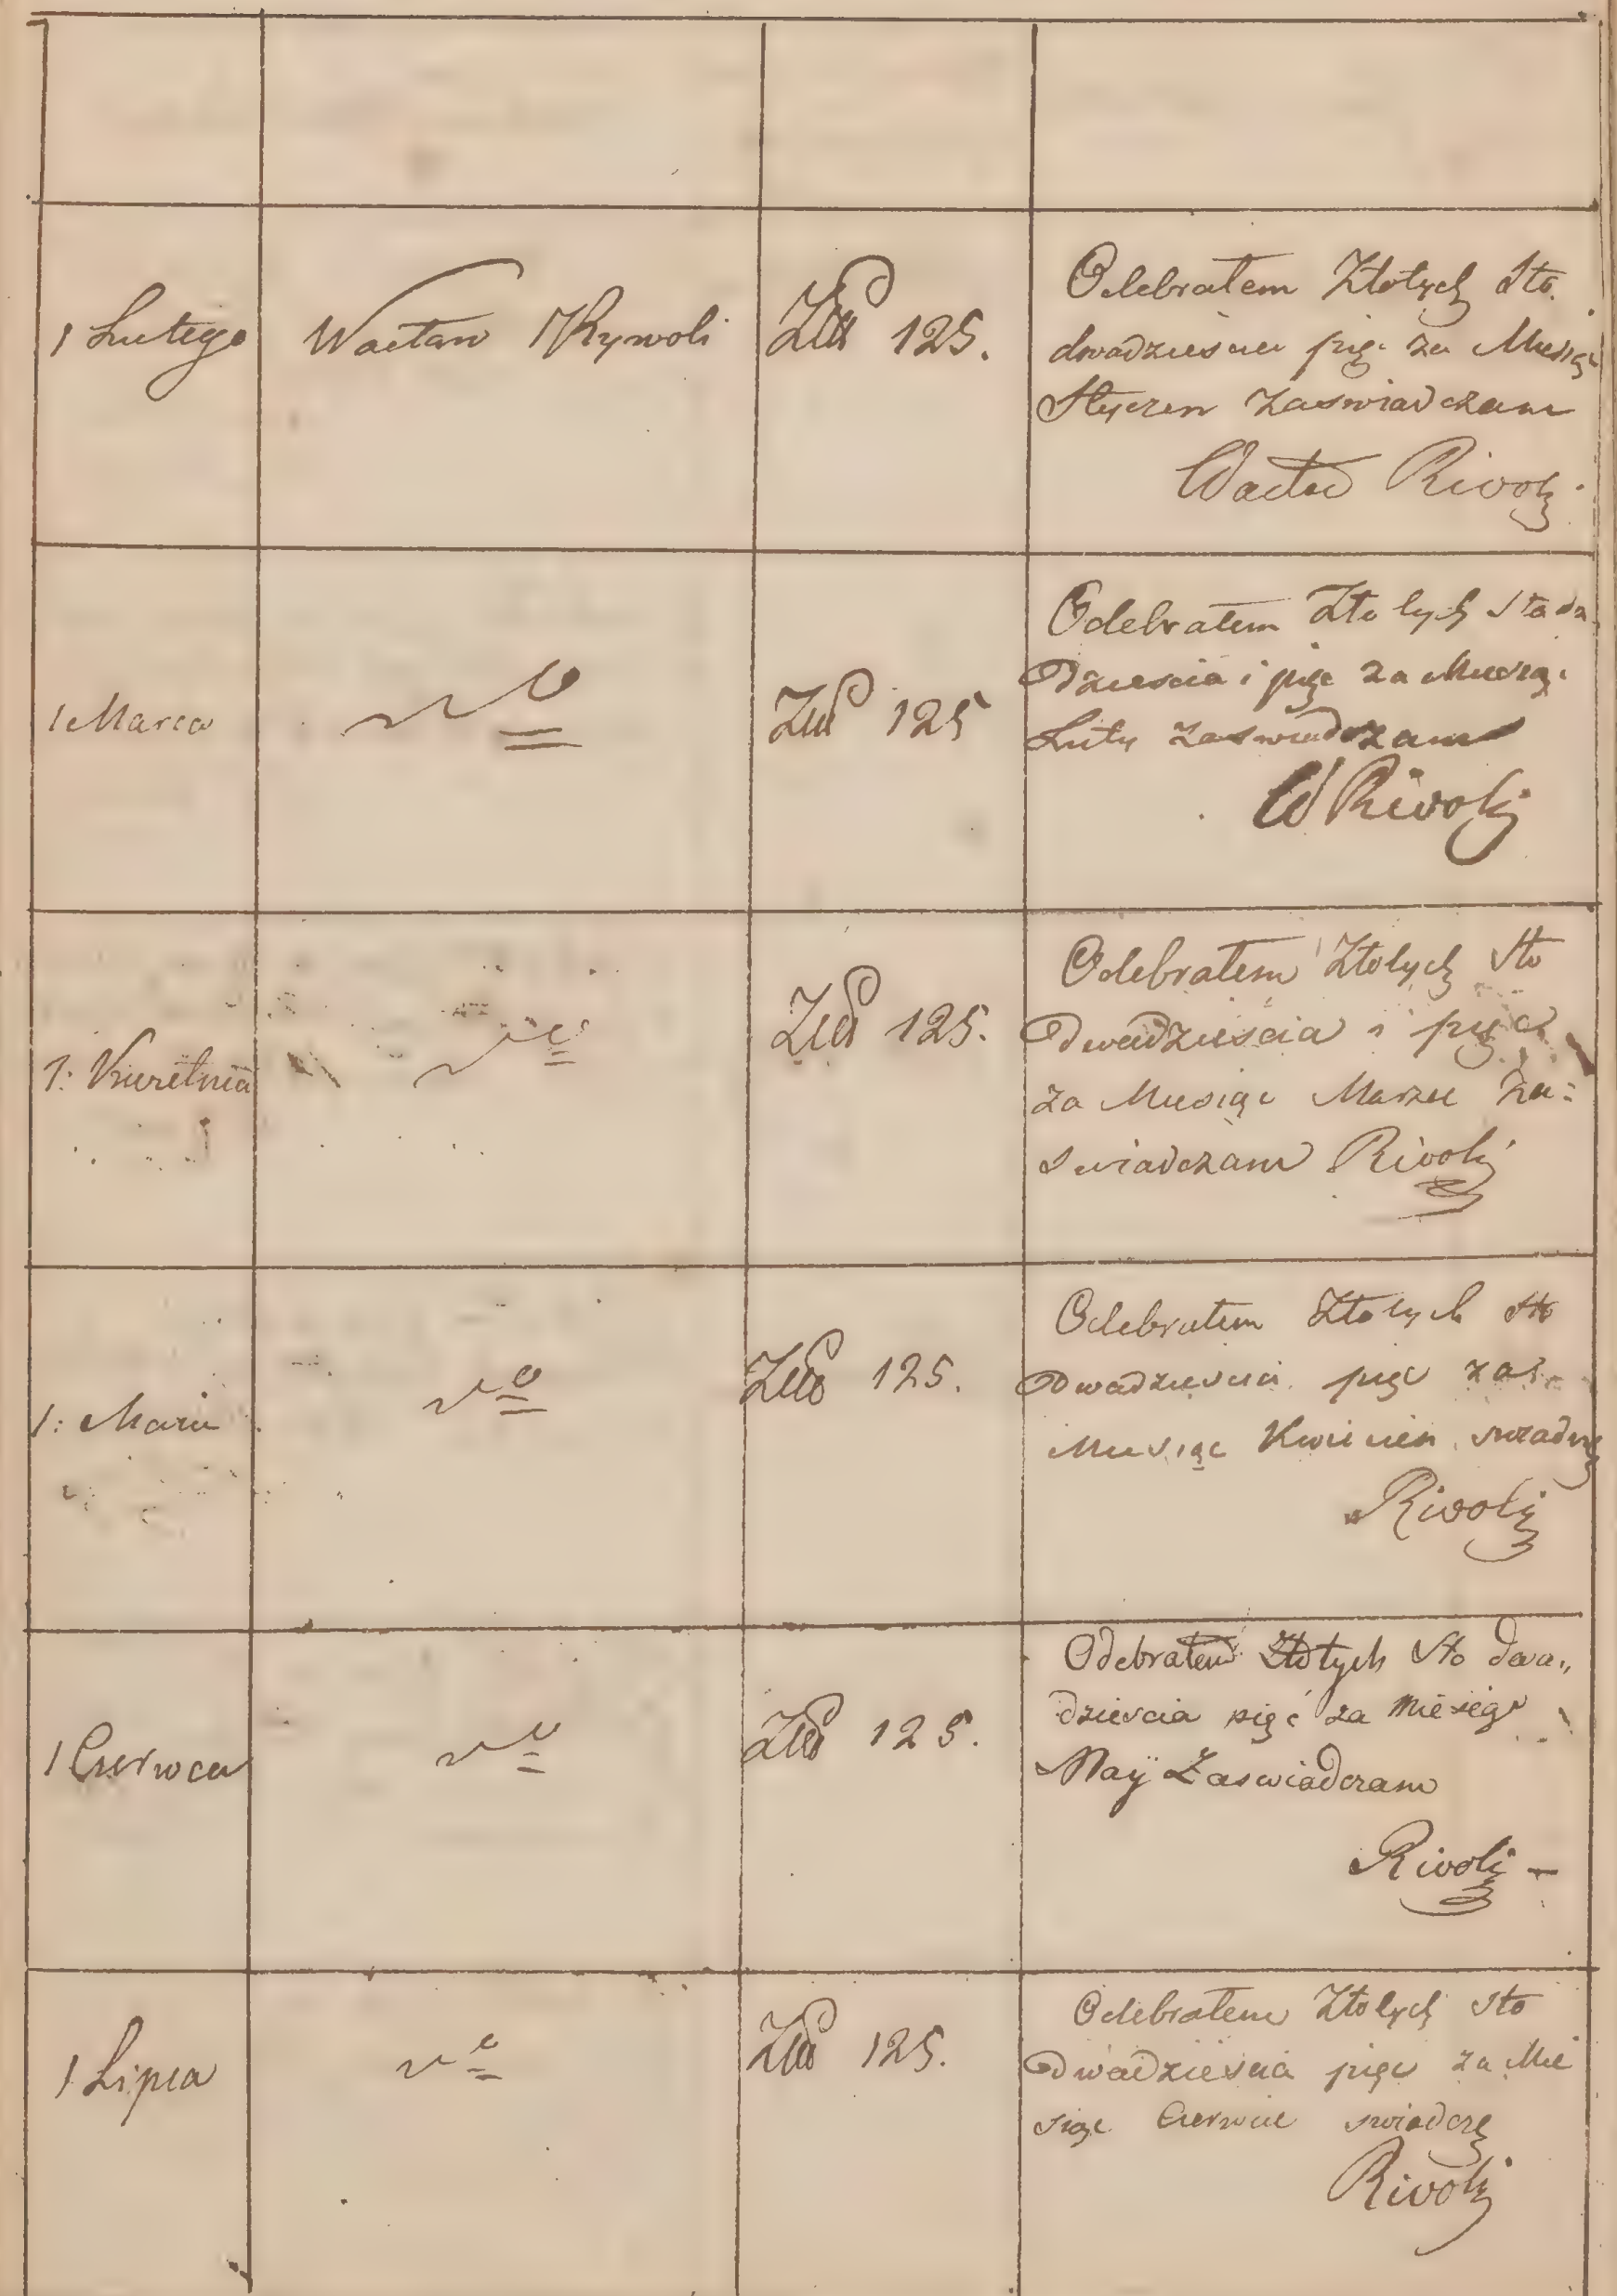 1 Lutego
Wacław Rywoli
Złp 125.
Odebrałem Złotych Sto.
dwadziescia pięc za Miesiąc
Styczen Zaswiadczam
Wacław Rivoly
1 Marca
Złp 125
Odebrałem Złotych Stodwa
Dziescia i pięc za Miesiąc
Luty zaswiadczam
W Rivoly
1: Kwietnia
Złp 125.
Odebrałem Złotych Sto
Dwadzieścia i pięc
za Miesiąc Marzec Za:
swiadczam Rivoly
1: Maia
Złp 125.
Odebrałem Złotych Sto
Dwadziescia pięc za
Miesiąc Kwiecien swiadczę
Rivoly
1 Czerwca
Złp 125.
Odebrałem Złotych Sto dwa„
dziescia pięć za Miesięc
May Zaswiadczam
Rivoly
1 Lipca
Złp 125.
Odebrałem Złotych Sto
Dwadziescia pięc za Mie
siąc Czerwiec swiadczę
Rivoly